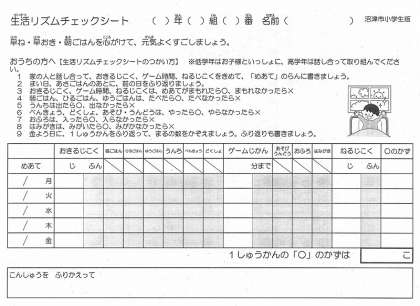 生活リズムチェックシート （ ）年（ ）組（ ）番 名前（ ） 沼津市小学生版
早ね・早おき・朝ごはんを心がけて、元気よくすごしましょう。
おうちの方へ【生活リズムチェックシートのつかい方】 ※低学年はお子様といっしょに、高学年は話し合って取り組んでください。
1 家の人と話し合って、おきるじこく、ゲーム時間、ねるじこくをきめて、「めあて」のらんに書きましょう。
2 まい日、あさごはんのあとに、前の日をふり返りましょう。
3 おきるじこく、ゲーム時間、ねるじこくは、めあてがまもれたら○、まもれなかったら×
4 朝ごはん、ひるごはん、ゆうごはんは、たべたら○、たべなかったら×
5 うんちは出たら○、出なかったら×
6 べんきょう、どくしょ、あそび・うんどうは、やったら○、やらなかったら×
7 おふろは、入ったら○、入らなかったら×
8 はみがきは、みがいたら○、みがかなかったら×
9 金よう日に、1しゅうかんをふり返って、まるの数をかぞえましょう。ふり返りも書きましょう。
おきるじこく 朝ごはん ひるごはん ゆうごはん うんち べんきょう どくしょ ゲームじかん あそびうんどう おふろ はみがき ねるじこく ○のかず
めあて じ ふん 分まで じ ふん
／ 月
／ 火
／ 水
／ 木
／ 金
1しゅうかんの「○」のかずは こ
こんしゅうを ふりかえって